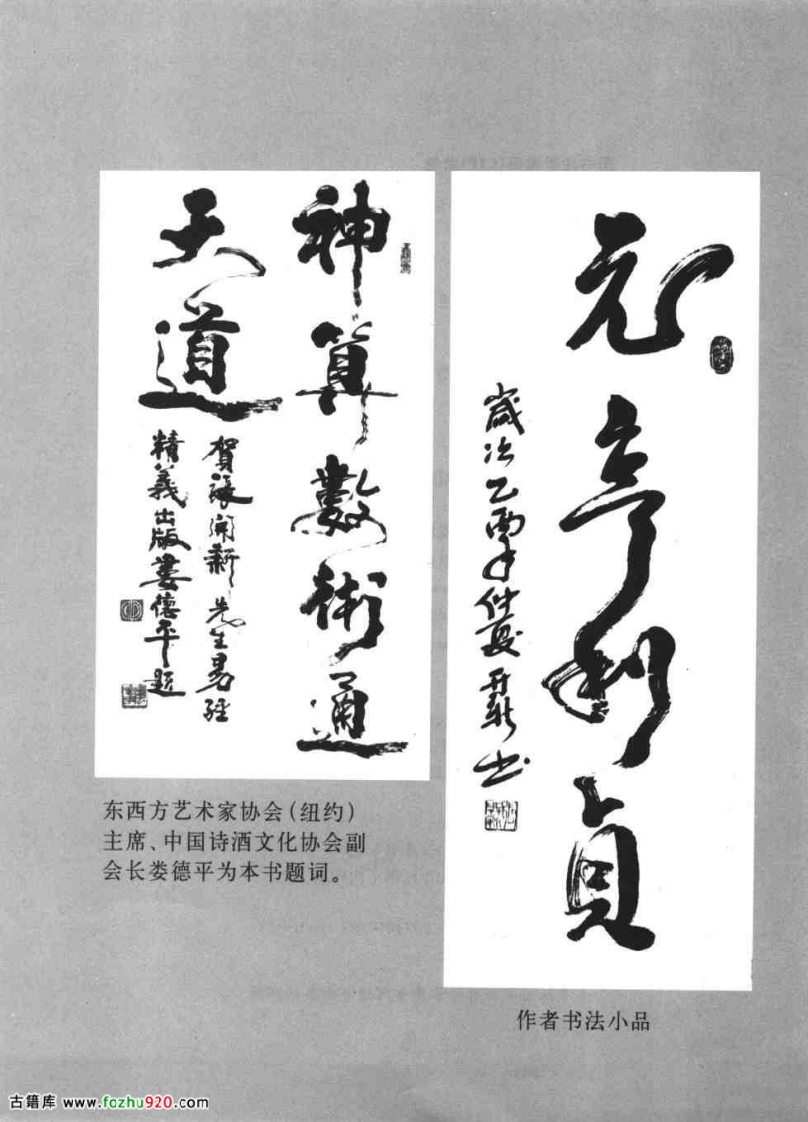 神算數術通
天道
賀張開新先生易經
精義出版婁德平題
元亨利貞
歲次乙酉年仲夏開新书
东西方艺术家协会(纽约)
主席、中国诗酒文化协会副
会长娄德平为本书题词。
作者书法小品
古籍库 www.fozhu920.com